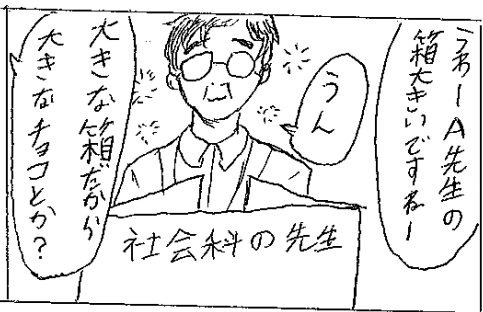 うわーA先生の
箱大きいですねー
うん
大きな箱だから
大きなチョコとか?
社会科の先生